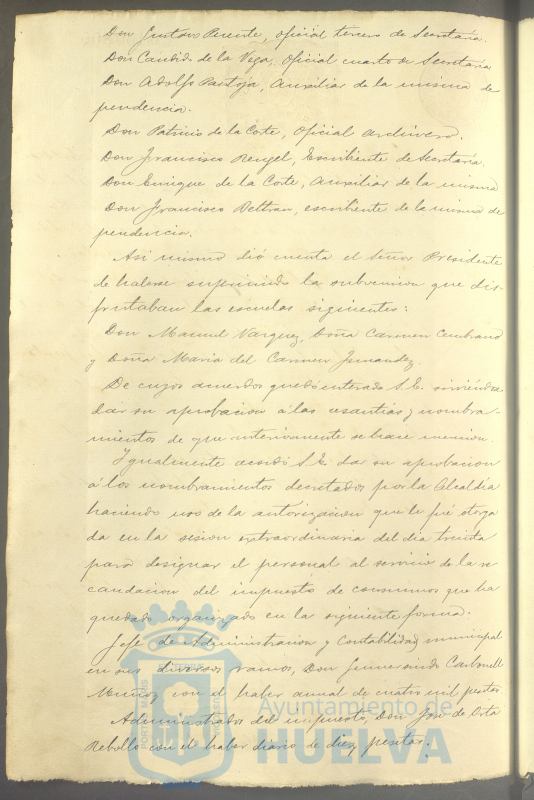 Don Gustavo Pierente, oficial tercero de Secretaria.
Don Candido de la Vega, oficial cuarto de Secretaria
Don Adolfo Pantoja, Auxiliar de la misma de
pendencia.
Don Patricio de la Corte, oficial archivero.
Don Francisco Rengel, Escribiente de Secretaría,
Don Enrique de la Corte, Auxiliar de la misma
Don Francisco Beltran, escribiente de la misma de
pendencia.
Asi mismo dió cuenta el Señor Presidente
de haberse suprimido la subvencion que dis-
frutaban las escuelas siguientes:
Don Manuel Vazquez, Doña Carmen
y Doña Maria del Carmen
De cuyos acuerdos quedó enterado S. E. sirviéndose
dar su aprobacion á las cesantías y nombra-
mientos de que anteriormente se hace mencion.
Igualmente acordó S. E. dar su aprobacion
á los nombramientos decretados por la Alcaldía
haciendo uso de la autorizacion que le fué otorga
da en la sesion extraordinaria del dia treinta
para designar el personal al servicio de la re
caudacion del impuesto de consumos que ha
quedado organizado en la siguiente forma.
Jefe de Administracion y Contabilidad municipal
en sus diversos ramos, Don Gumersindo Carbonell
Muñoz con el haber anual de cuatro mil pesetas
Administrador del impuesto, Don José de Orta
Rebollo con el haber diario de diez pesetas.
PORTUS MARIS
Ayuntamiento de
HUELVA